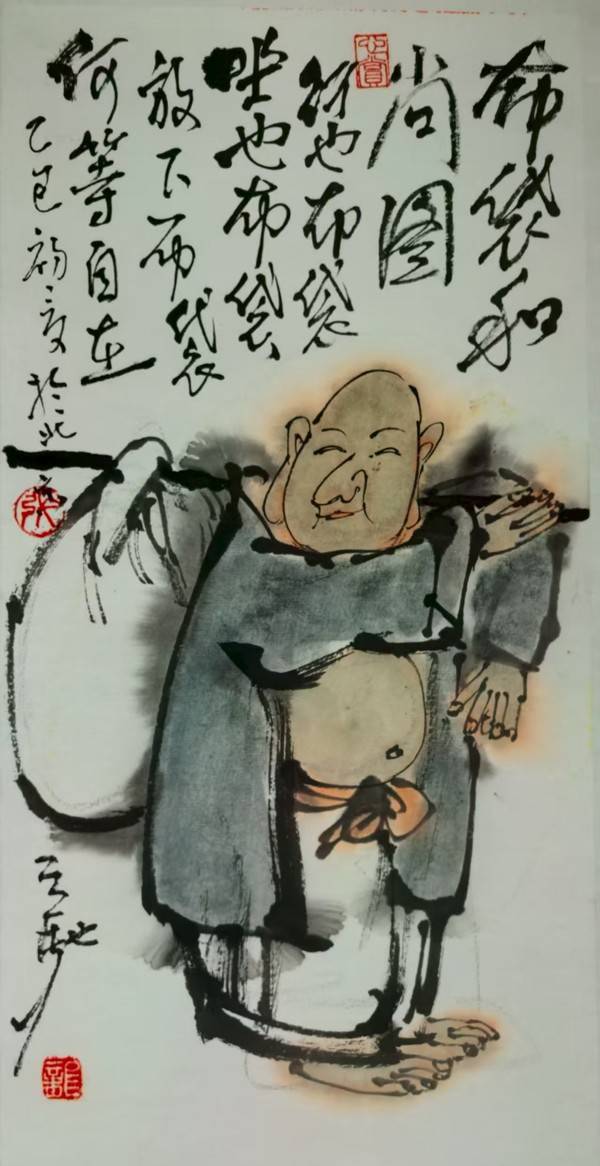 布袋和
尚图
行也布袋
坐也布袋
放下布袋
何等自在
乙巳
于北京